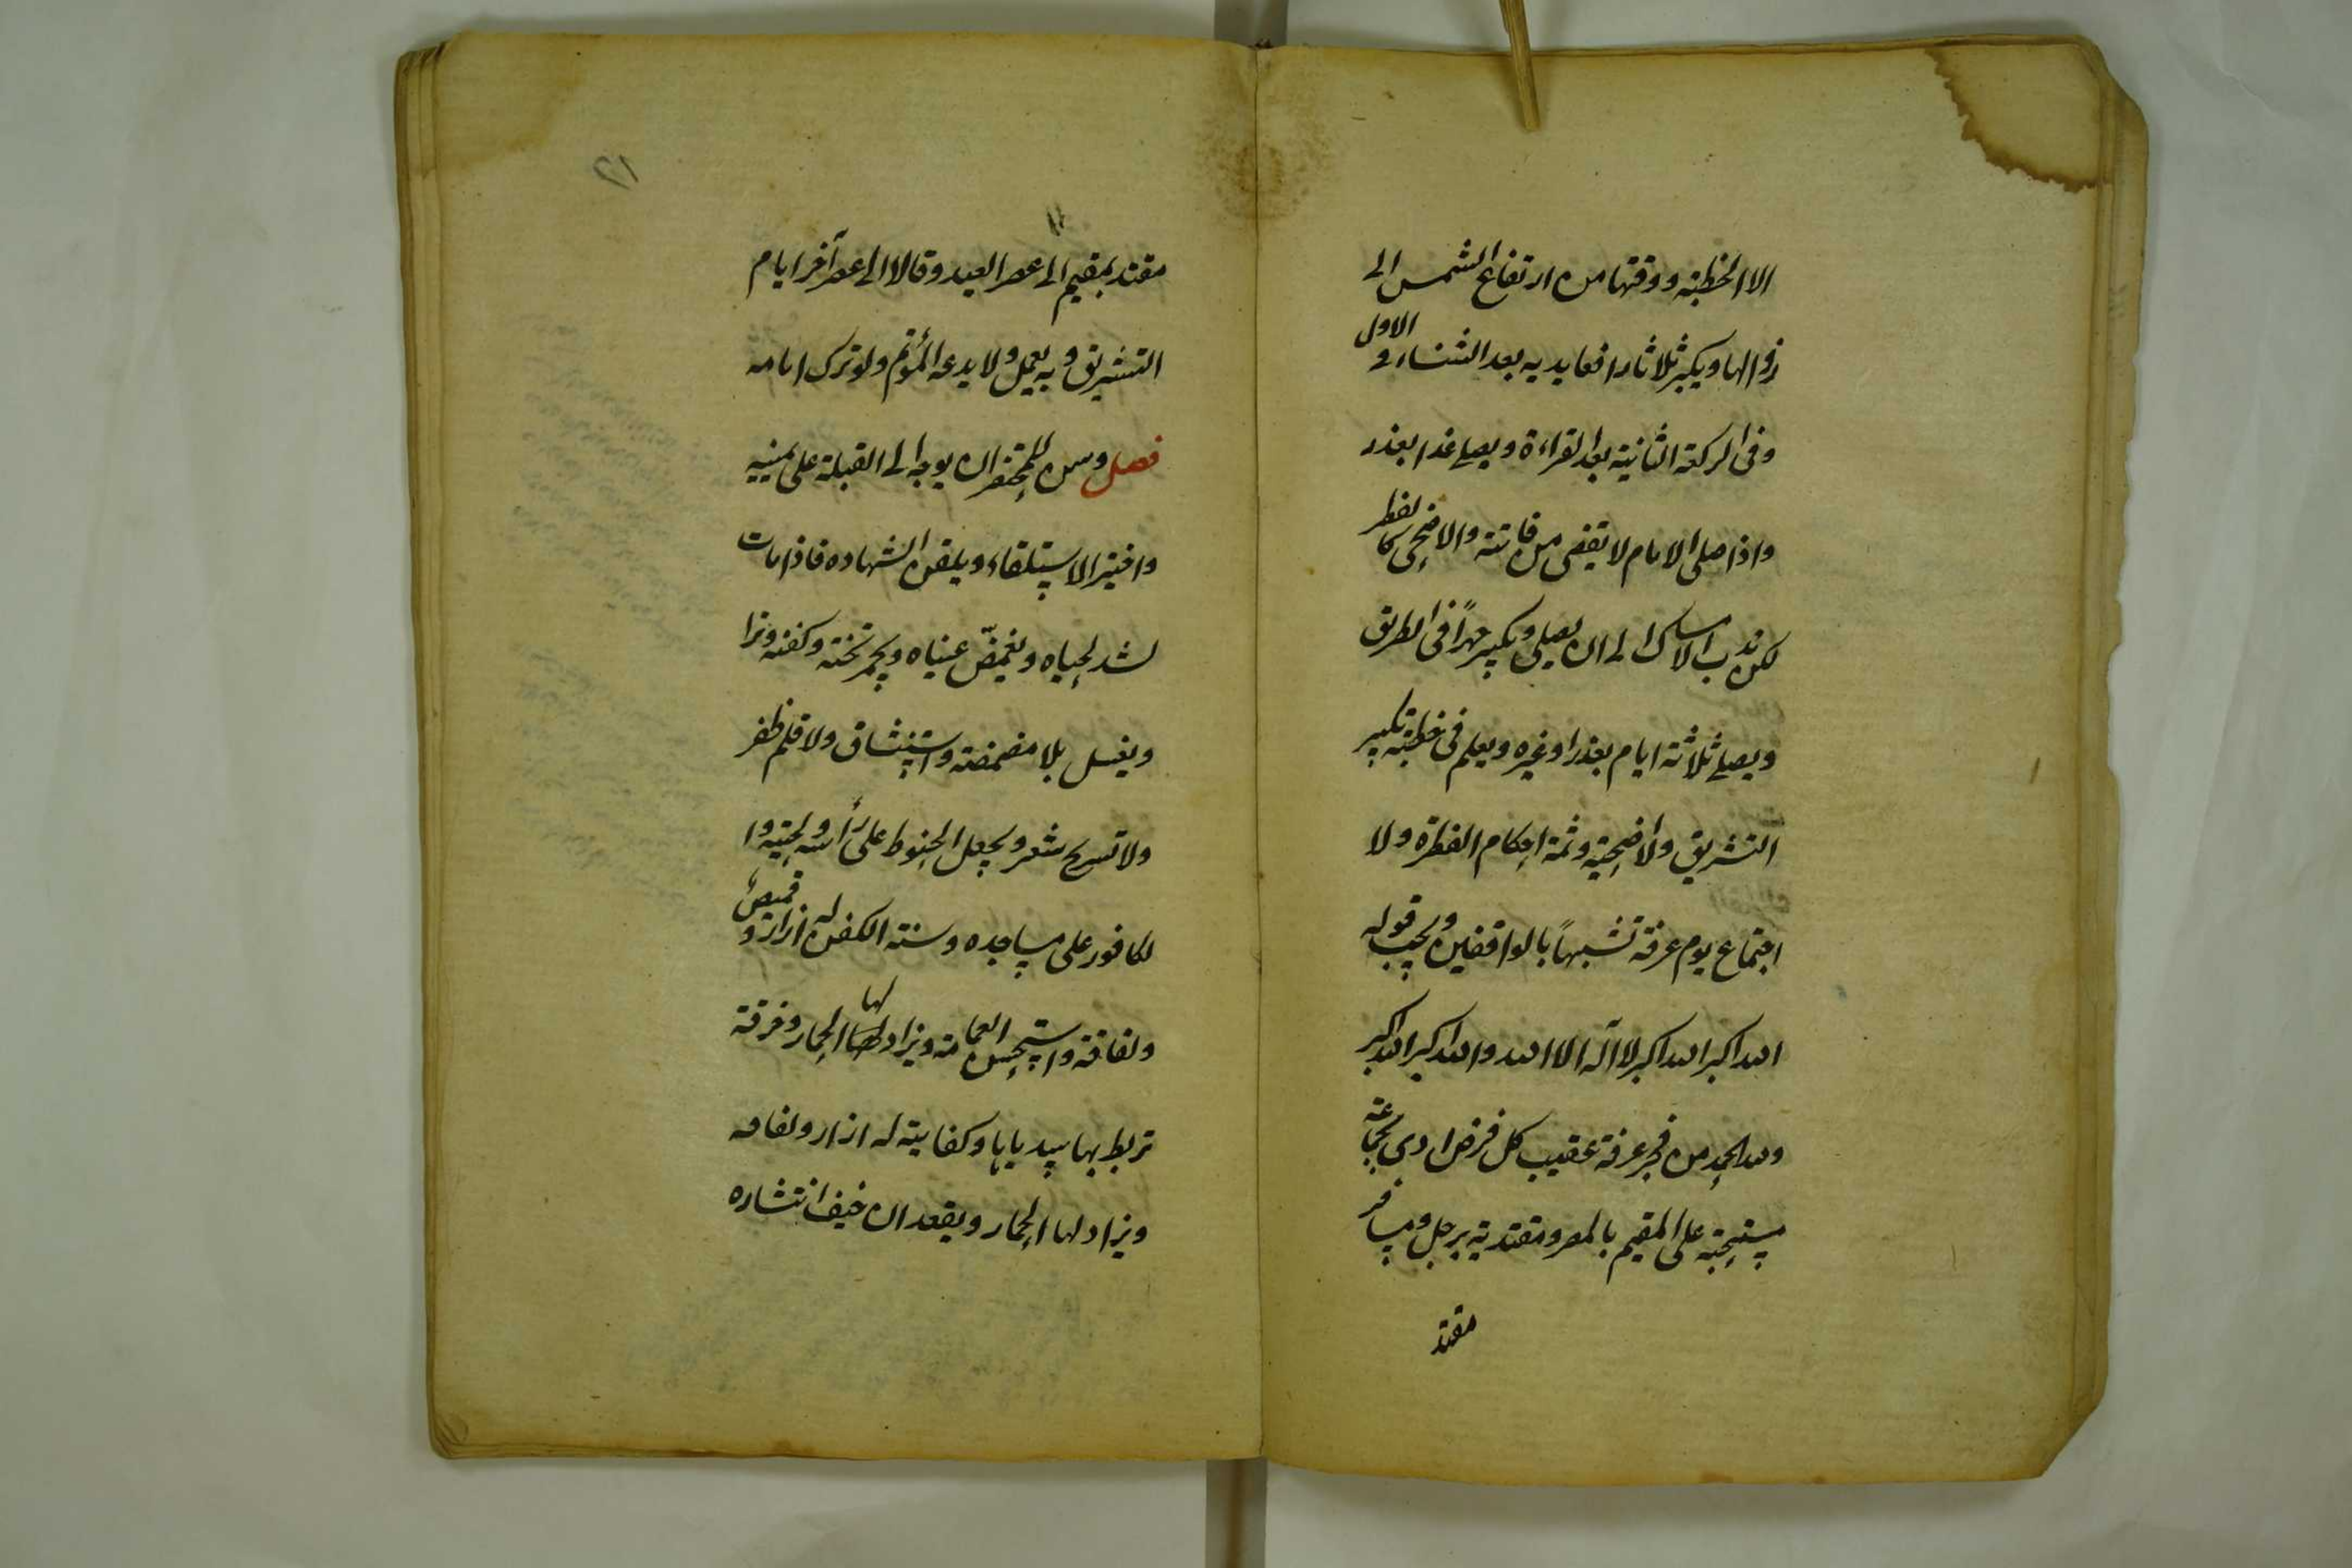 الا الخطبة ووقتها من ارتفاع الشمس الى
زوالها ويكبر ثلاثا رافعا يديه بعد الثناء فى الاول
وفى الركعة الثانية بعد القراءة ويصلى غدا بعذر
واذا صلى الامام لا يقضى من فاتته والاضحى كالفطر
لكن ندب الامساك الى ان يصلى ويكبر جهرًا فى الطريق
ويصلى ثلاثة ايام بعذر او غيره ويعلم فى خطبته تكبير
التشريق والاضحية وثمة احكام الفطرة ولا
اجتماع يوم عرفة تشبهًا بالواقفين ويجب قوله
الله اكبر الله اكبر لا آله الا الله والله اكبر الله اكبر
ولله الحمد من فجر عرفة عقيب كل فرض ادى بجماعة
مستحبة على المقيم بالمصر ومقتدية برجل ومسافر
مقتد
٢١
مقتد بمقيم الى عصر العيد وقالا الى عصر آخر ايام
التشريق وبه يعمل ولا يدعه المؤتم ولو ترك امامه
فصل وسن للمحتضر ان يوجه الى القبلة على يمينه
واختير الاستلقاء ويلقن الشهاده فاذا مات
شد لحياه ويغمّض عيناه ويجمر تخته وكفنه وترا
ويغسل بلا مضمضة واستنشاق ولا قلم ظفر
ولا تسريح شعر ويجعل الحنوط على رأسه ولحيته وا
لكافور على مساجده وسنة الكفن له ازار وقميص
ولفافة واستحسن العمامة ويزاد لها الخمار وخرقة
تربط بها يدياها وكفايته له ازار ولفافه
ويزاد لها الخمار ويعقد ان خيف انتشاره